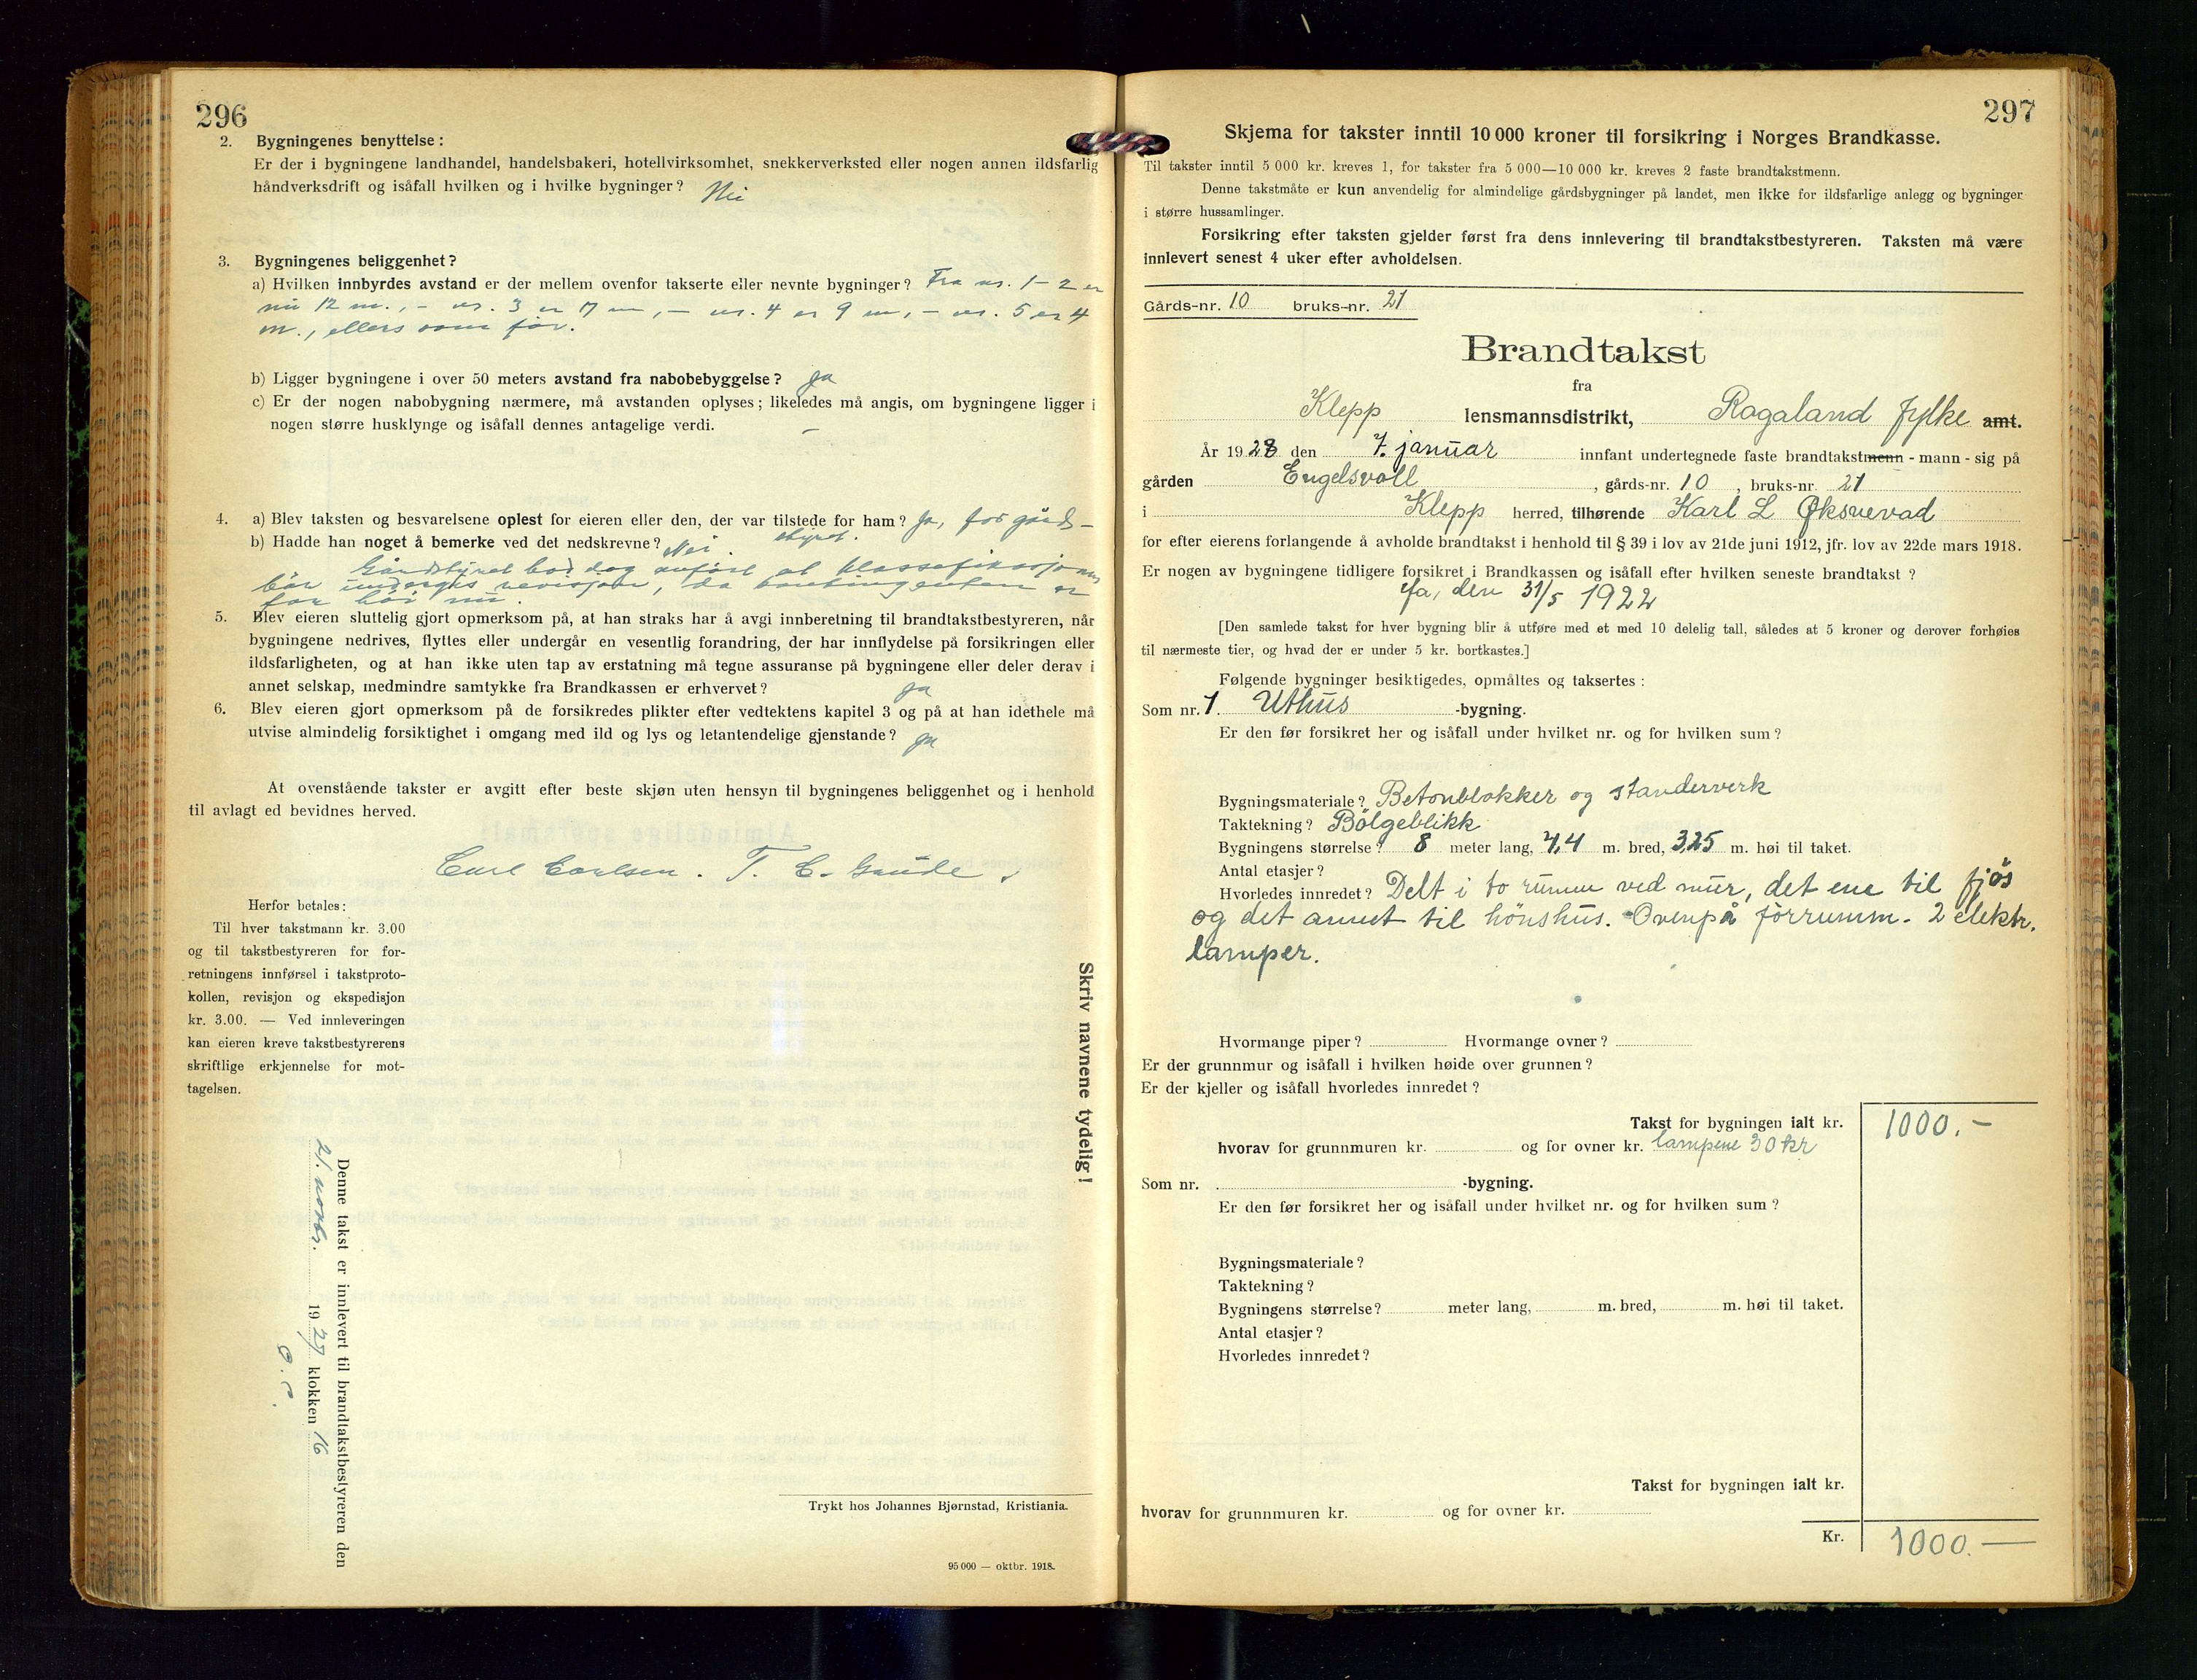 296
2. Bygningenes benyttelse:
Er der i bygningene landhandel, handelsbakeri, hotellvirksomhet, snekkerverksted eller nogen annen ildsfarlig
håndverksdrift og isåfall hvilken og i hvilke bygninger? Nei
3. Bygningenes beliggenhet?
a) Hvilken innbyrdes avstand er der mellem ovenfor takserte eller nevnte bygninger? Fra nr. 1-2 er
nu 12 m., - nr. 3 er 17 m, - nr. 4 er 9 m, - nr. 5 er 4
m., ellers som før.
b) Ligger bygningene i over 50 meters avstand fra nabobebyggelse? Ja
c) Er der nogen nabobygning nærmere, må avstanden oplyses; likeledes må angis, om bygningene ligger i
nogen større husklynge og isåfall dennes antagelige verdi. —
4. a) Blev taksten og besvarelsene oplest for eieren eller den, der var tilstede for ham? Ja, for gårds-
styret.
b) Hadde han noget å bemerke ved det nedskrevne? Nei.
Gårdstyret bad dog anført at klassefikasjonen
bør undergis revisjon, da kontingenten er
for høi nu.
5. Blev eieren sluttelig gjort opmerksom på, at han straks har å avgi innberetning til brandtakstbestyreren, når
bygningene nedrives, flyttes eller undergår en vesentlig forandring, der har innflydelse på forsikringen eller
ildsfarligheten, og at han ikke uten tap av erstatning må tegne assuranse på bygningene eller deler derav i
annet selskap, medmindre samtykke fra Brandkassen er erhvervet? Ja
6. Blev eieren gjort opmerksom på de forsikredes plikter efter vedtektens kapitel 3 og på at han idethele må
utvise almindelig forsiktighet i omgang med ild og lys og letantendelige gjenstande? Ja
At ovenstående takster er avgitt efter beste skjøn uten hensyn til bygningenes beliggenhet og i henhold
til avlagt ed bevidnes herved.
Carl Carlsen. T. C. Gaude.
Herfor betales:
Til hver takstmann kr. 3.00
og til takstbestyreren for for-
retningens innførsel i takstproto-
kollen, revisjon og ekspedisjon
kr. 3.00. — Ved innleveringen
kan eieren kreve takstbestyrerens
skriftlige erkjennelse for mot-
tagelsen.
Skriv navnene tydelig!
Denne takst er innlevert til brandtakstbestyreren den
21. novbr. 1927 klokken 16
Trykt hos Johannes Bjørnstad, Kristiania.
95 000 — oktbr. 1918.
297
Skjema for takster inntil 10 000 kroner til forsikring i Norges Brandkasse.
Til takster inntil 5 000 kr. kreves 1, for takster fra 5 000—10 000 kr. kreves 2 faste brandtakstmenn.
Denne takstmåte er kun anvendelig for almindelige gårdsbygninger på landet, men ikke for ildsfarlige anlegg og bygninger
i større hussamlinger.
Forsikring efter taksten gjelder først fra dens innlevering til brandtakstbestyreren. Taksten må være
innlevert senest 4 uker efter avholdelsen.
Gårds-nr. 10 bruks-nr. 21
Brandtakst
fra
Klepp lensmannsdistrikt, Rogaland fylke amt.
År 1928 den 7. januar innfant undertegnede faste brandtakstmenn - mann - sig på
gården Engelsvoll, gårds-nr. 10, bruks-nr. 21
i Klepp herred, tilhørende Karl L Øksnevad
for efter eierens forlangende å avholde brandtakst i henhold til § 39 i lov av 21de juni 1912, jfr. lov av 22de mars 1918.
Er nogen av bygningene tidligere forsikret i Brandkassen og isåfall efter hvilken seneste brandtakst?
Ja, den 31/5 1922
[Den samlede takst for hver bygning blir å utføre med et med 10 delelig tall, således at 5 kroner og derover forhøies
til nærmeste tier, og hvad der er under 5 kr. bortkastes.]
Følgende bygninger besiktigedes, opmåltes og taksertes:
Som nr. 1. Uthus -bygning.
Er den før forsikret her og isåfall under hvilket nr. og for hvilken sum?
Bygningsmateriale? Betonblokker og standerverk
Taktekning? Bölgeblikk
Bygningens størrelse? 8 meter lang, 7,4 m. bred, 3,25 m. høi til taket.
Antal etasjer?
Hvorledes innredet? Delt i to rumm ved mur, det ene til fjøs
og det annet til hönshus. Ovenpå förrumm. 2 elektr.
lamper.
Hvormange piper? Hvormange ovner?
Er der grunnmur og isåfall i hvilken høide over grunnen?
Er der kjeller og isåfall hvorledes innredet?
Takst for bygningen ialt kr. 1000.-
hvorav for grunnmuren kr. og for ovner kr. lampene 30 kr
Som nr. -bygning.
Er den før forsikret her og isåfall under hvilket nr. og for hvilken sum?
Bygningsmateriale?
Taktekning?
Bygningens størrelse? meter lang, m. bred, m. høi til taket.
Antal etasjer?
Hvorledes innredet?
Takst for bygningen ialt kr.
hvorav for grunnmuren kr. og for ovner kr.
Kr. 1000.—